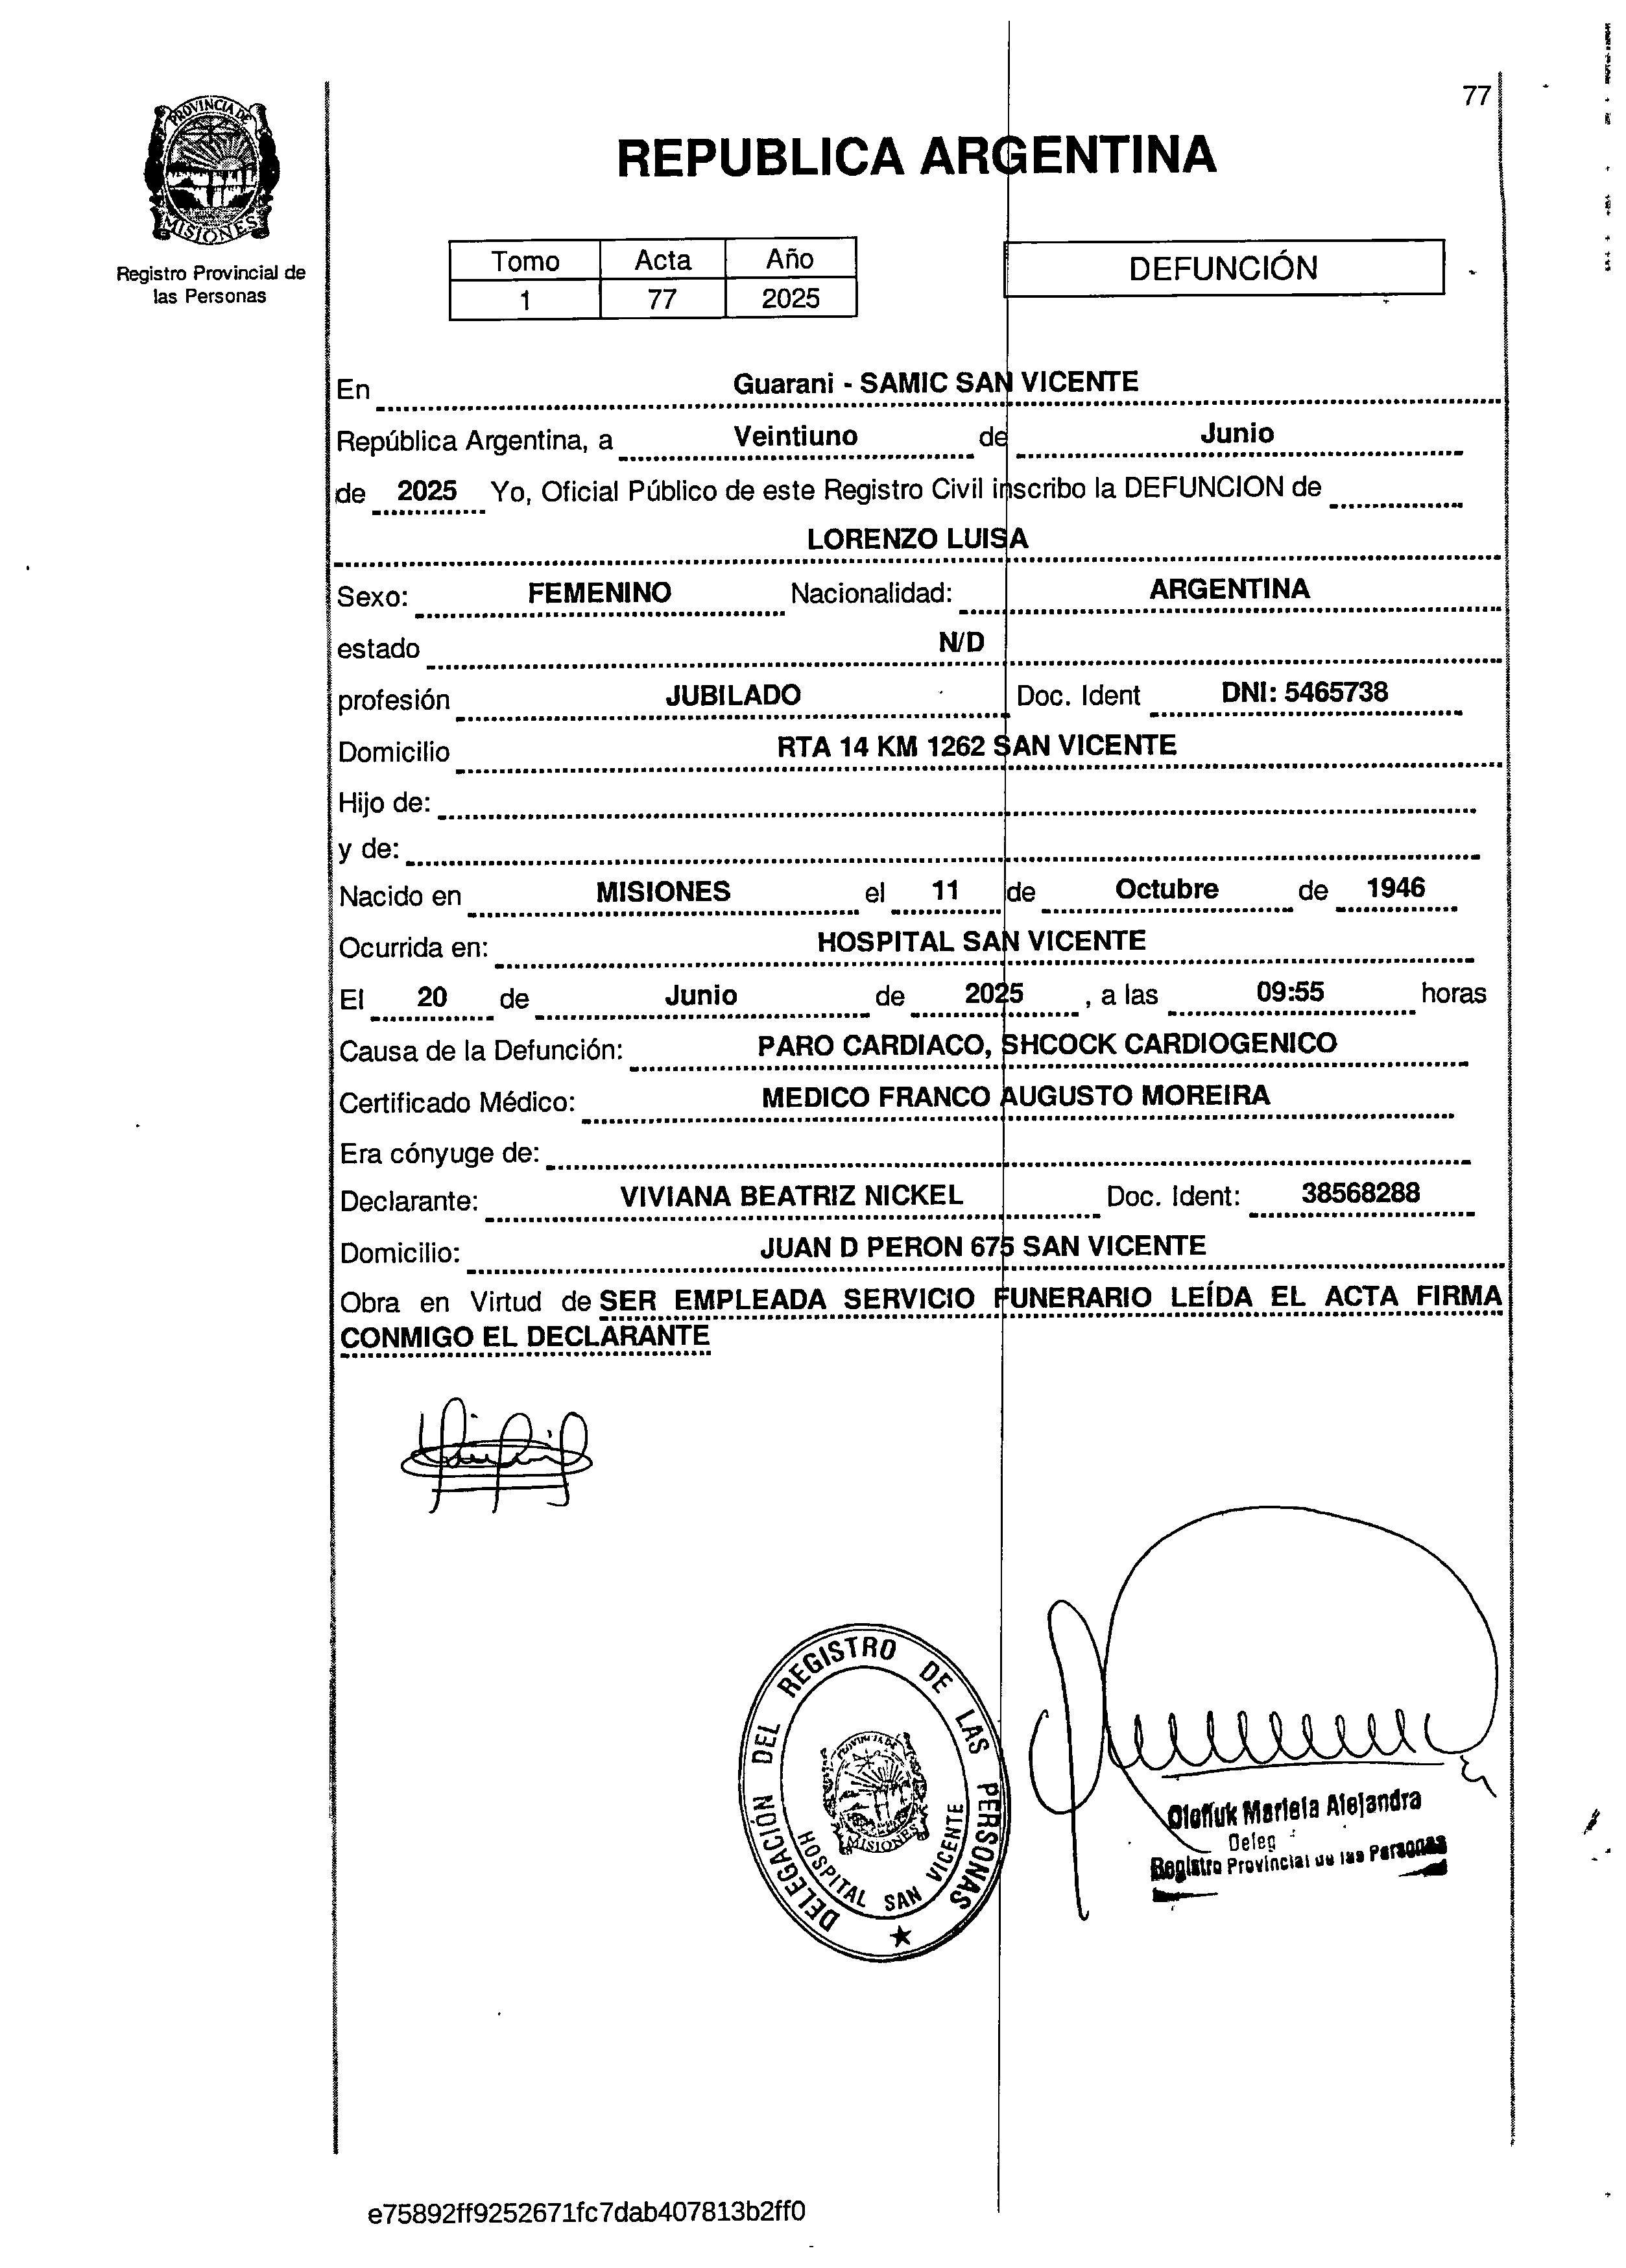 77
PROVINCIA DE
MISIONES
Registro Provincial de
las Personas
REPUBLICA ARGENTINA
Tomo Acta Año
1 77 2025
DEFUNCIÓN
En Guarani - SAMIC SAN VICENTE
República Argentina, a Veintiuno de Junio
de 2025 Yo, Oficial Público de este Registro Civil inscribo la DEFUNCION de
LORENZO LUISA
Sexo: FEMENINO Nacionalidad: ARGENTINA
estado N/D
profesión JUBILADO Doc. Ident DNI: 5465738
Domicilio RTA 14 KM 1262 SAN VICENTE
Hijo de:
y de:
Nacido en MISIONES el 11 de Octubre de 1946
Ocurrida en: HOSPITAL SAN VICENTE
El 20 de Junio de 2025 , a las 09:55 horas
Causa de la Defunción: PARO CARDIACO, SHCOCK CARDIOGENICO
Certificado Médico: MEDICO FRANCO AUGUSTO MOREIRA
Era cónyuge de:
Declarante: VIVIANA BEATRIZ NICKEL Doc. Ident: 38568288
Domicilio: JUAN D PERON 675 SAN VICENTE
Obra en Virtud de SER EMPLEADA SERVICIO FUNERARIO LEÍDA EL ACTA FIRMA
CONMIGO EL DECLARANTE
DELEGACIÓN DEL REGISTRO DE LAS PERSONAS
HOSPITAL SAN VICENTE
PROVINCIA DE
MISIONES
Mariela Alejandra
Deleg
Registro Provincial de las Personas
e75892ff9252671fc7dab407813b2ff0